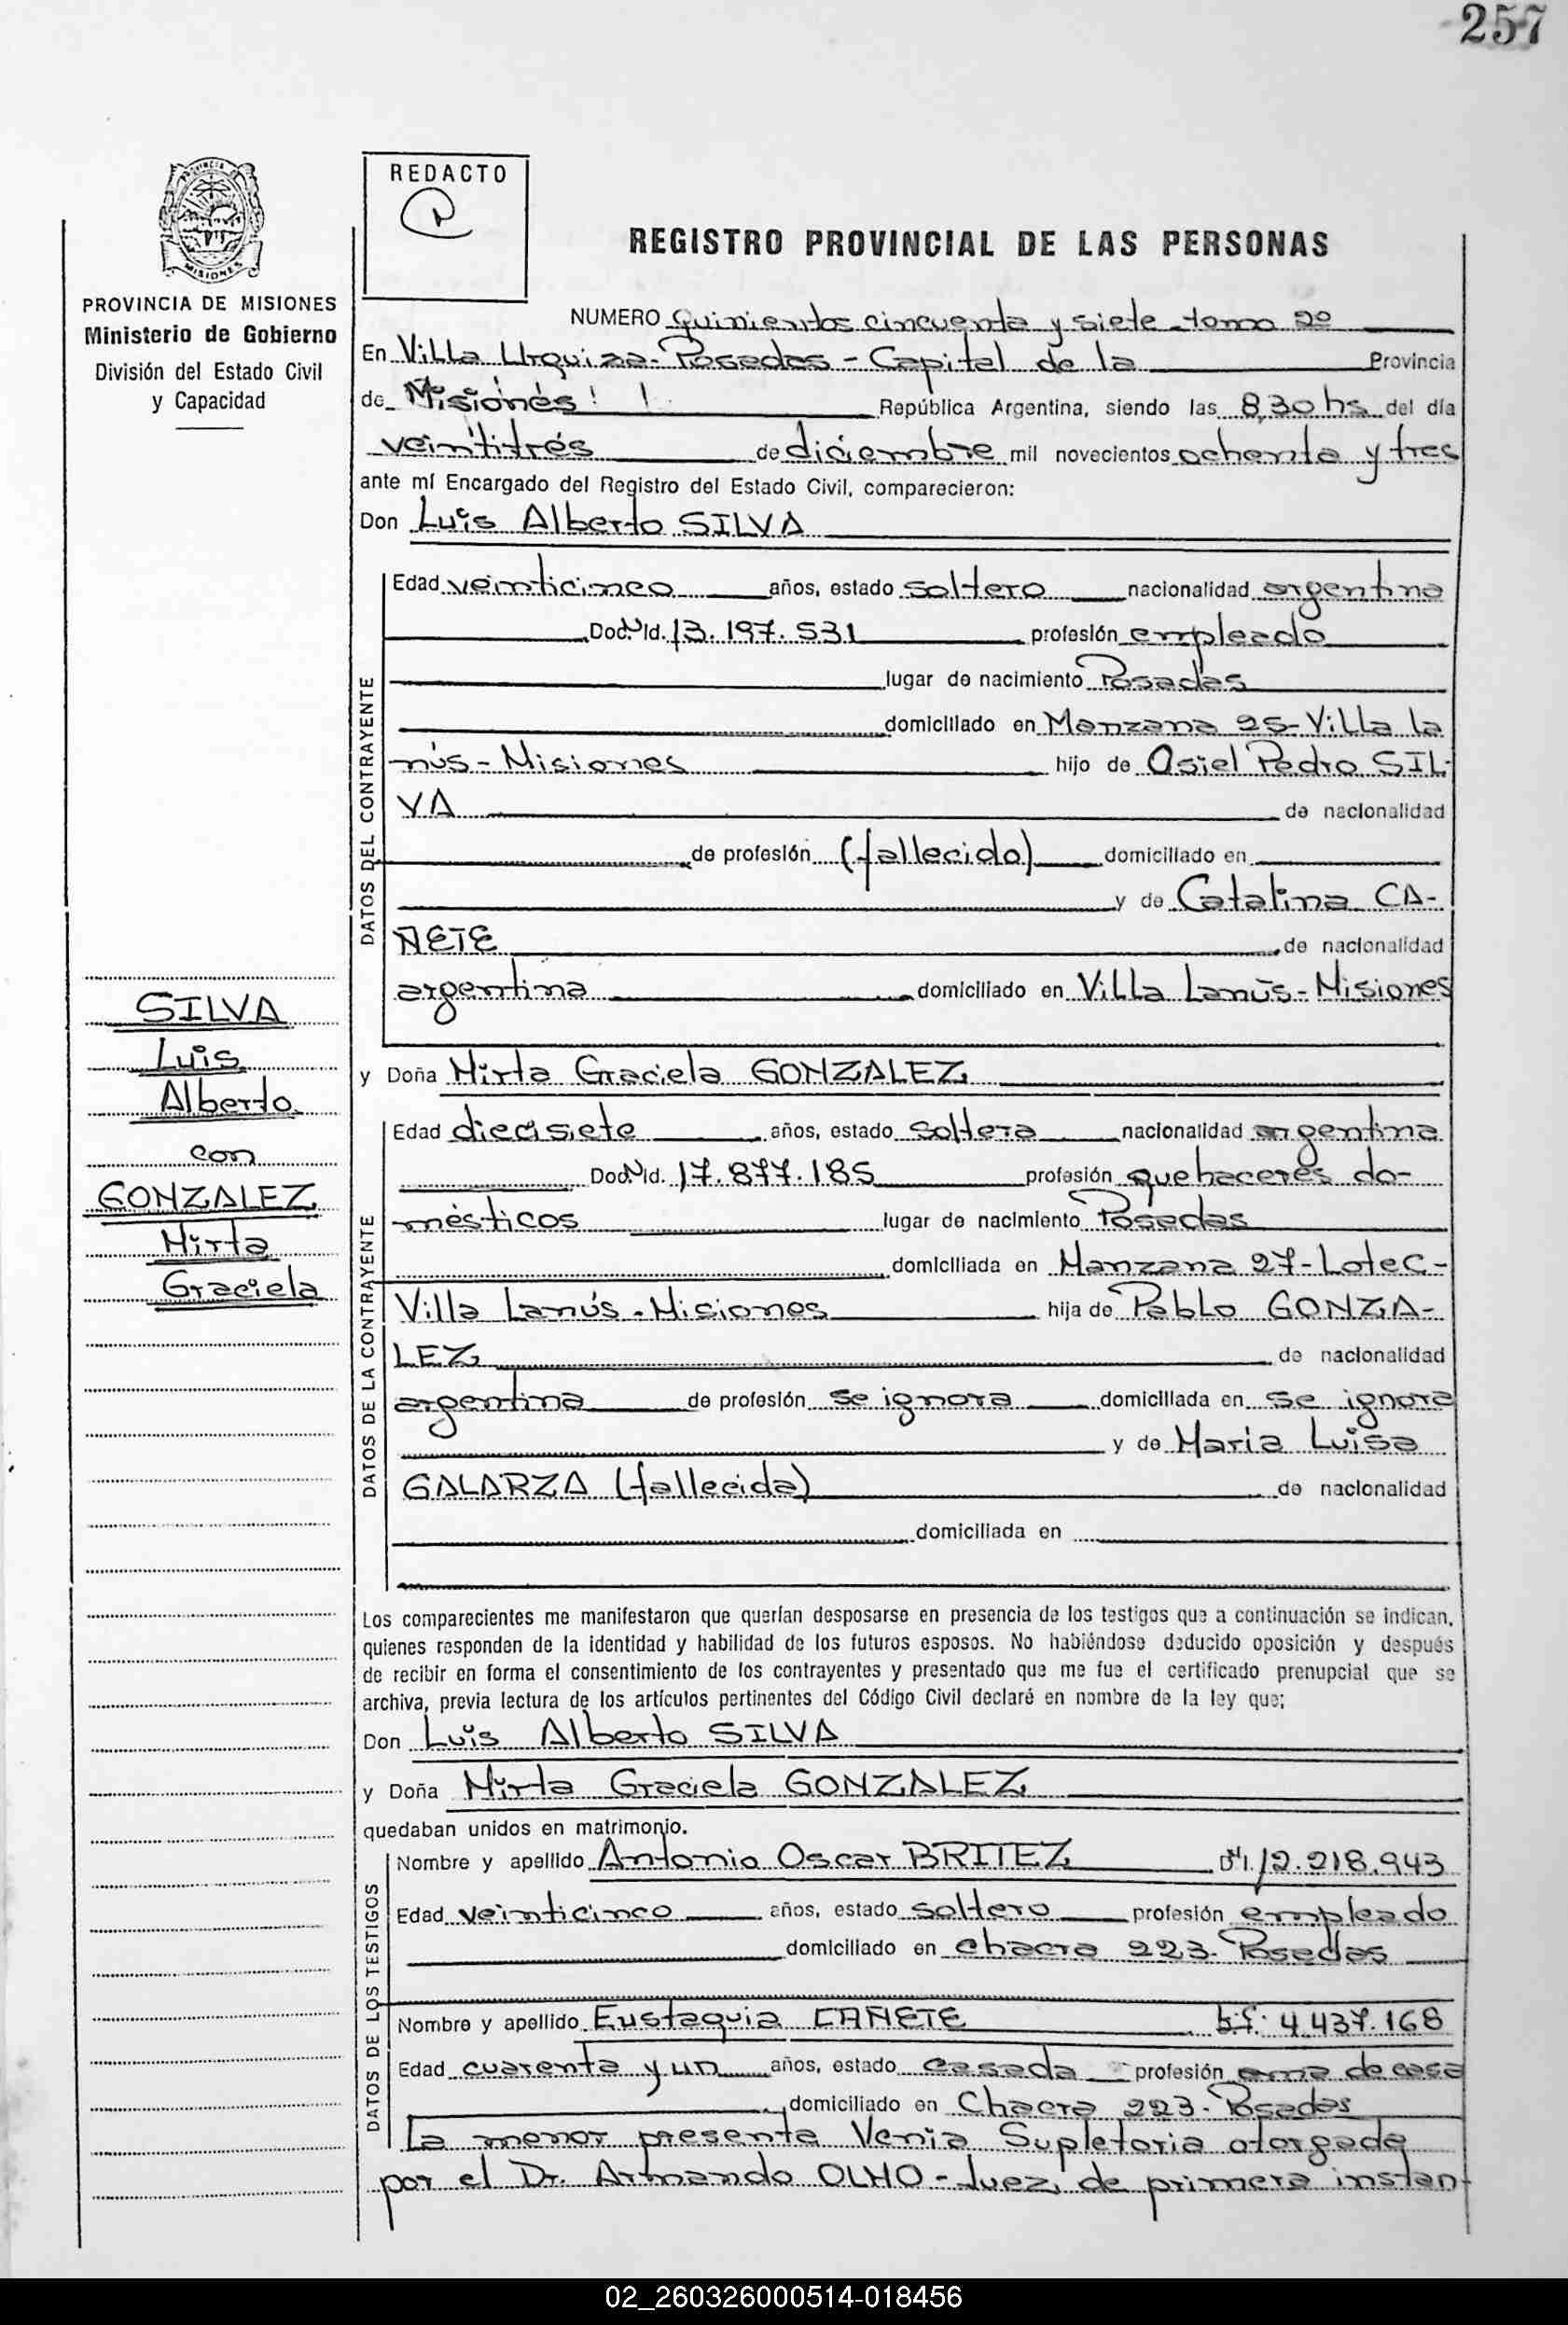 257
PROVINCIA
MISIONES
PROVINCIA DE MISIONES
Ministerio de Gobierno
División del Estado Civil
y Capacidad
REDACTO
REGISTRO PROVINCIAL DE LAS PERSONAS
NUMERO quinientos cincuenta y siete tomo 2º
En Villa Urquiza - Posadas - Capital de la Provincia
de Misiones República Argentina, siendo las 8,30 hs del día
veintitrés de diciembre mil novecientos ochenta y tres
ante mí Encargado del Registro del Estado Civil, comparecieron:
Don Luis Alberto SILVA
DATOS DEL CONTRAYENTE
Edad veinticinco años, estado soltero nacionalidad argentina
Doc. Nº Id. 13.197.531 profesión empleado
lugar de nacimiento Posadas
domiciliado en Manzana 25 - Villa la
nús - Misiones hijo de Osiel Pedro SIL-
VA de nacionalidad
de profesión (fallecido) domiciliado en
y de Catalina CA-
ÑETE de nacionalidad
argentina domiciliado en Villa Lanús - Misiones
SILVA
Luis
Alberto
con
GONZALEZ
Mirta
Graciela
y Doña Mirta Graciela GONZALEZ
DATOS DE LA CONTRAYENTE
Edad diecisiete años, estado soltera nacionalidad argentina
Doc. Nº Id. 17.877.185 profesión quehaceres do-
mésticos lugar de nacimiento Posadas
domiciliada en Manzana 27 - Lote C -
Villa Lanús - Misiones hija de Pablo GONZA-
LEZ de nacionalidad
argentina de profesión se ignora domiciliada en se ignora
y de Maria Luisa
GALARZA (fallecida) de nacionalidad
domiciliada en
Los comparecientes me manifestaron que querían desposarse en presencia de los testigos que a continuación se indican,
quienes responden de la identidad y habilidad de los futuros esposos. No habiéndose deducido oposición y después
de recibir en forma el consentimiento de los contrayentes y presentado que me fue el certificado prenupcial que se
archiva, previa lectura de los artículos pertinentes del Código Civil declaré en nombre de la ley que;
Don Luis Alberto SILVA
y Doña Mirta Graciela GONZALEZ
quedaban unidos en matrimonio.
DATOS DE LOS TESTIGOS
Nombre y apellido Antonio Oscar BRITEZ 12.218.943
Edad veinticinco años, estado soltero profesión empleado
domiciliado en chacra 223 - Posadas
Nombre y apellido Eustaquia CAÑETE 4.437.168
Edad cuarenta y un años, estado casada profesión ama de casa
domiciliado en Chacra 223 - Posadas
La menor presenta Venia Supletoria otorgada
por el Dr. Armando OLMO - Juez de primera instan-
02_260326000514-018456